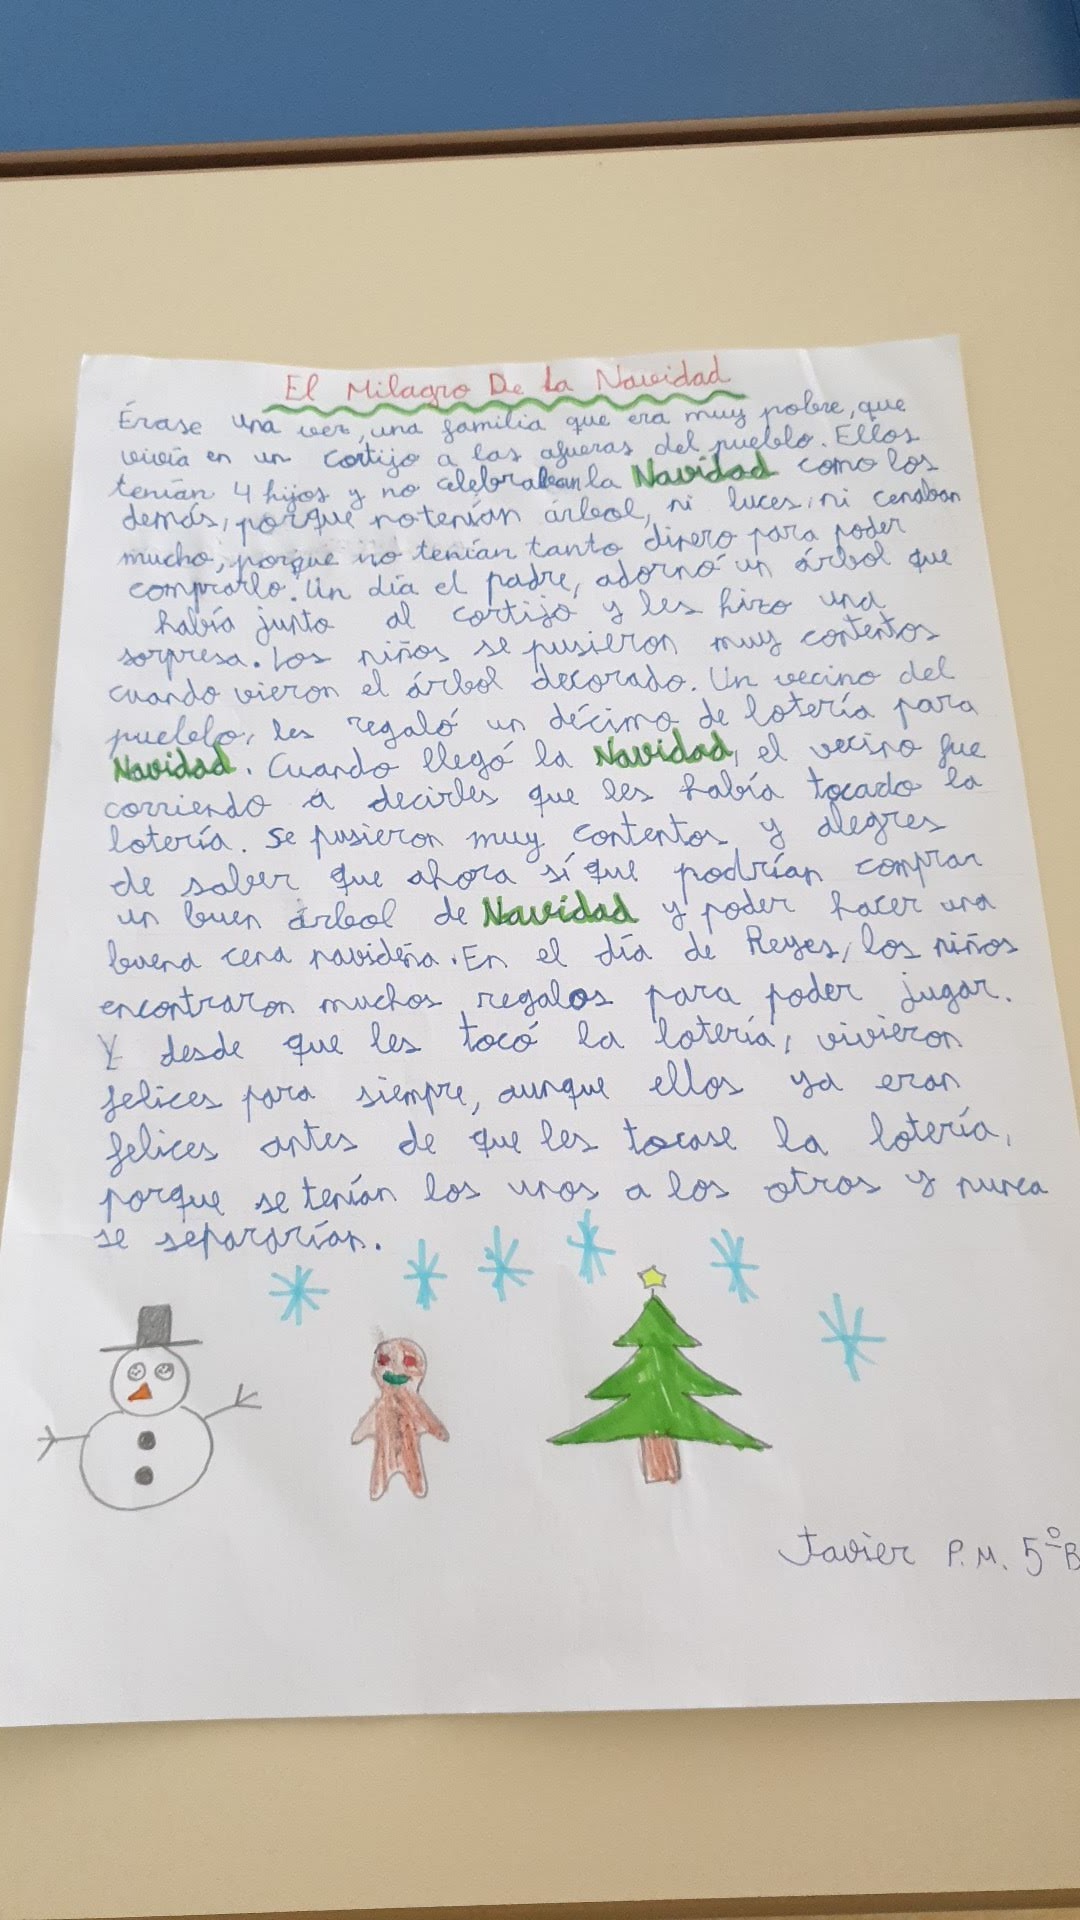 El Milagro De La Navidad
Érase una vez, una familia que era muy pobre, que
vivía en un cortijo a las afueras del pueblo. Ellos
tenían 4 hijos y no celebraban la Navidad como los
demás, porque no tenían árbol, ni luces, ni cenaban
mucho, porque no tenían tanto dinero para poder
comprarlo. Un día el padre, adornó un árbol que
había junto al cortijo y les hizo una
sorpresa. Los niños se pusieron muy contentos
cuando vieron el árbol decorado. Un vecino del
pueblo, les regaló un décimo de lotería para
Navidad. Cuando llegó la Navidad, el vecino fue
corriendo a decirles que les había tocado la
lotería. Se pusieron muy contentos y alegres
de saber que ahora sí que podrían comprar
un buen árbol de Navidad y poder hacer una
buena cena navideña. En el día de Reyes, los niños
encontraron muchos regalos para poder jugar.
Y desde que les tocó la lotería, vivieron
felices para siempre, aunque ellos ya eran
felices antes de que les tocase la lotería,
porque se tenían los unos a los otros y nunca
se separarían.
Javier P.M. 5ºB